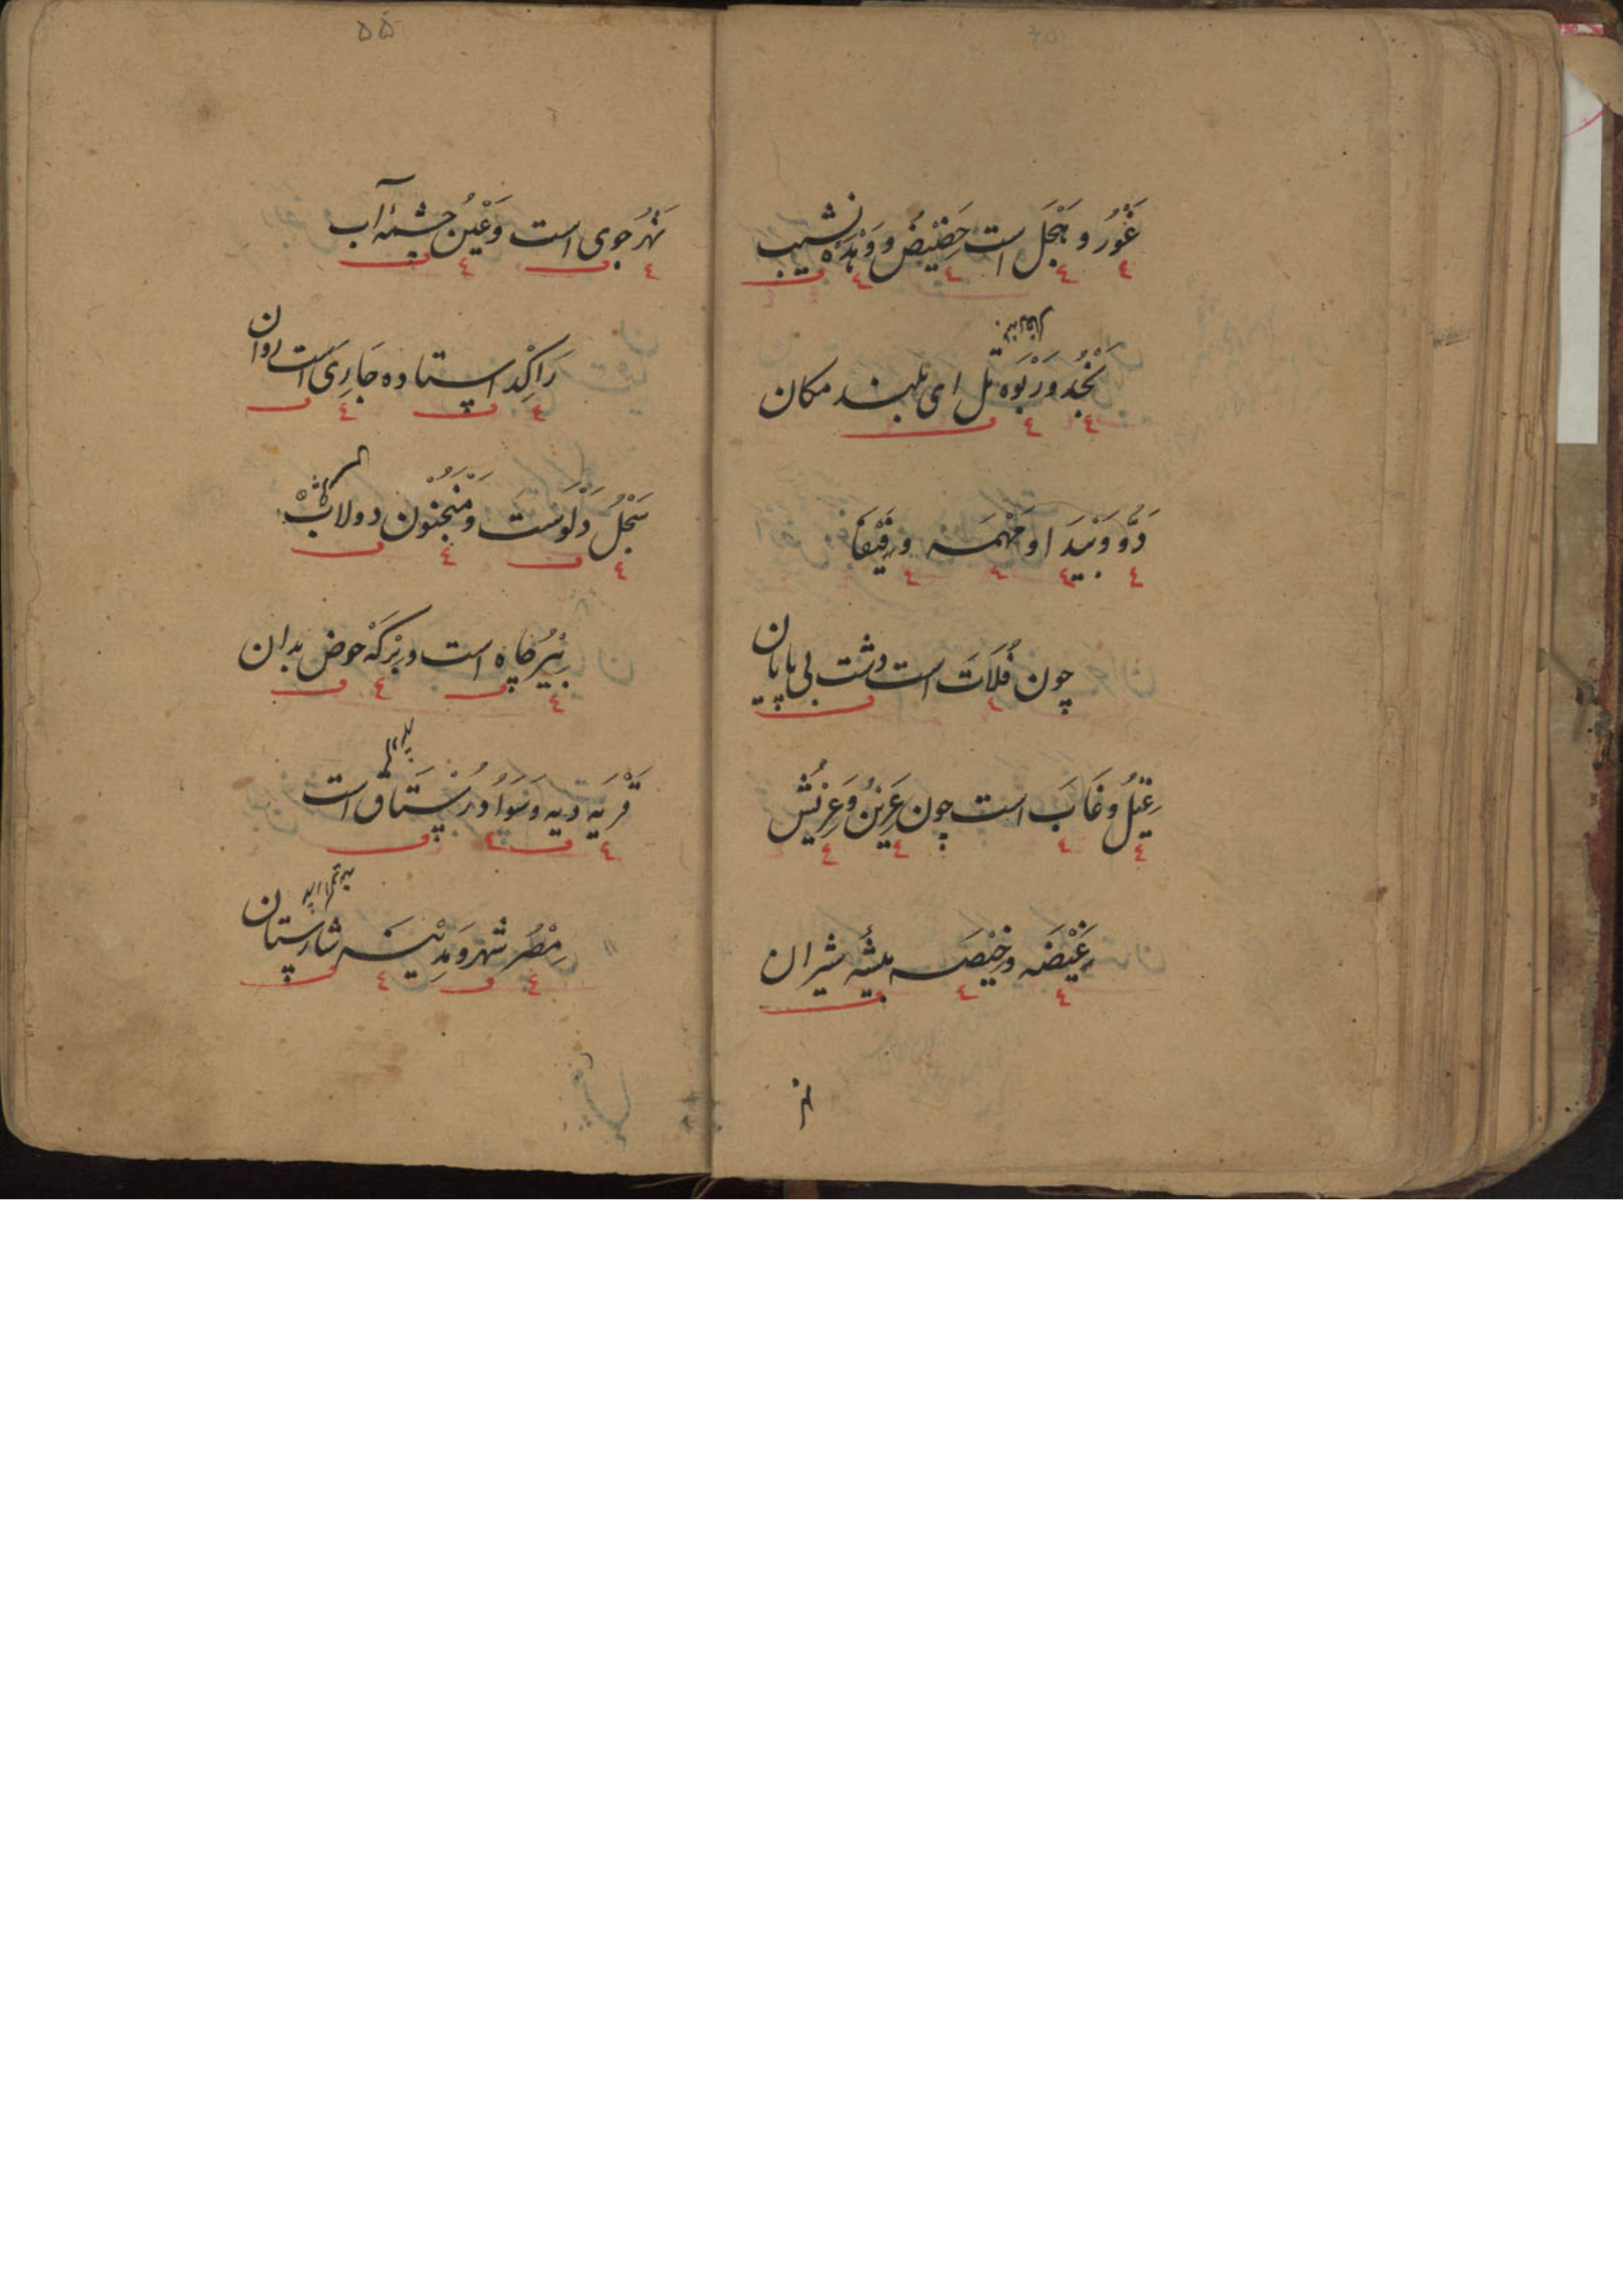 غَوْر و هَجْل است حَضِیْض و وَهْدَه نشیب
نَجْد و رَبْوَه تل ای بلند مکان
دَوُّ و بَیْدَا و مَهْمَه و فَیْفَا
چون فُلاَتَ است دشت بی پایان
غِیْلُ و غَابَ است چون عَرِیْنُ و عَرِیْش
غَیْضَه و خِیْصَه بیشهٔ شیران
نهر
۵۵
نَهْرُ جوی است وَ عَیْن چشمهٔ آب
رَاکِدْ استاده جَارِیَ است روان
سَجْلُ دَلْوَست وَ مَنْجَنُوْن دولاب
بِیْر چاه است و بِرْکَهْ حوض بدان
قَرْیَه دیه و سَوَادُ رُسْتَاق است
مِصْرُ شهر و مَدِیْنَه شارستان